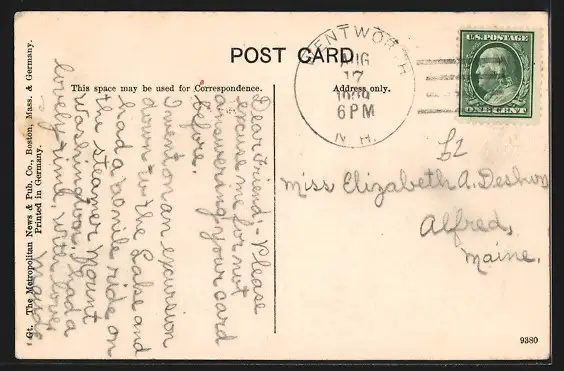 POST CARD
This space may be used for Correspondence.
Address only.
WENTWORTH
AUG
17
6 PM
N. H.
U.S. POSTAGE
ONE CENT
Dear Friend:- Please
excuse me for not
answering your card
before.
I went on an excursion
down to the Lake and
had a 60 mile ride on
the steamer Mount
Washington. Had a
lovely time. With love
Miss Elizabeth A.
Alfred,
Maine.
Gt. The Metropolitan News & Pub. Co., Boston, Mass. & Germany.
Printed in Germany.
9380